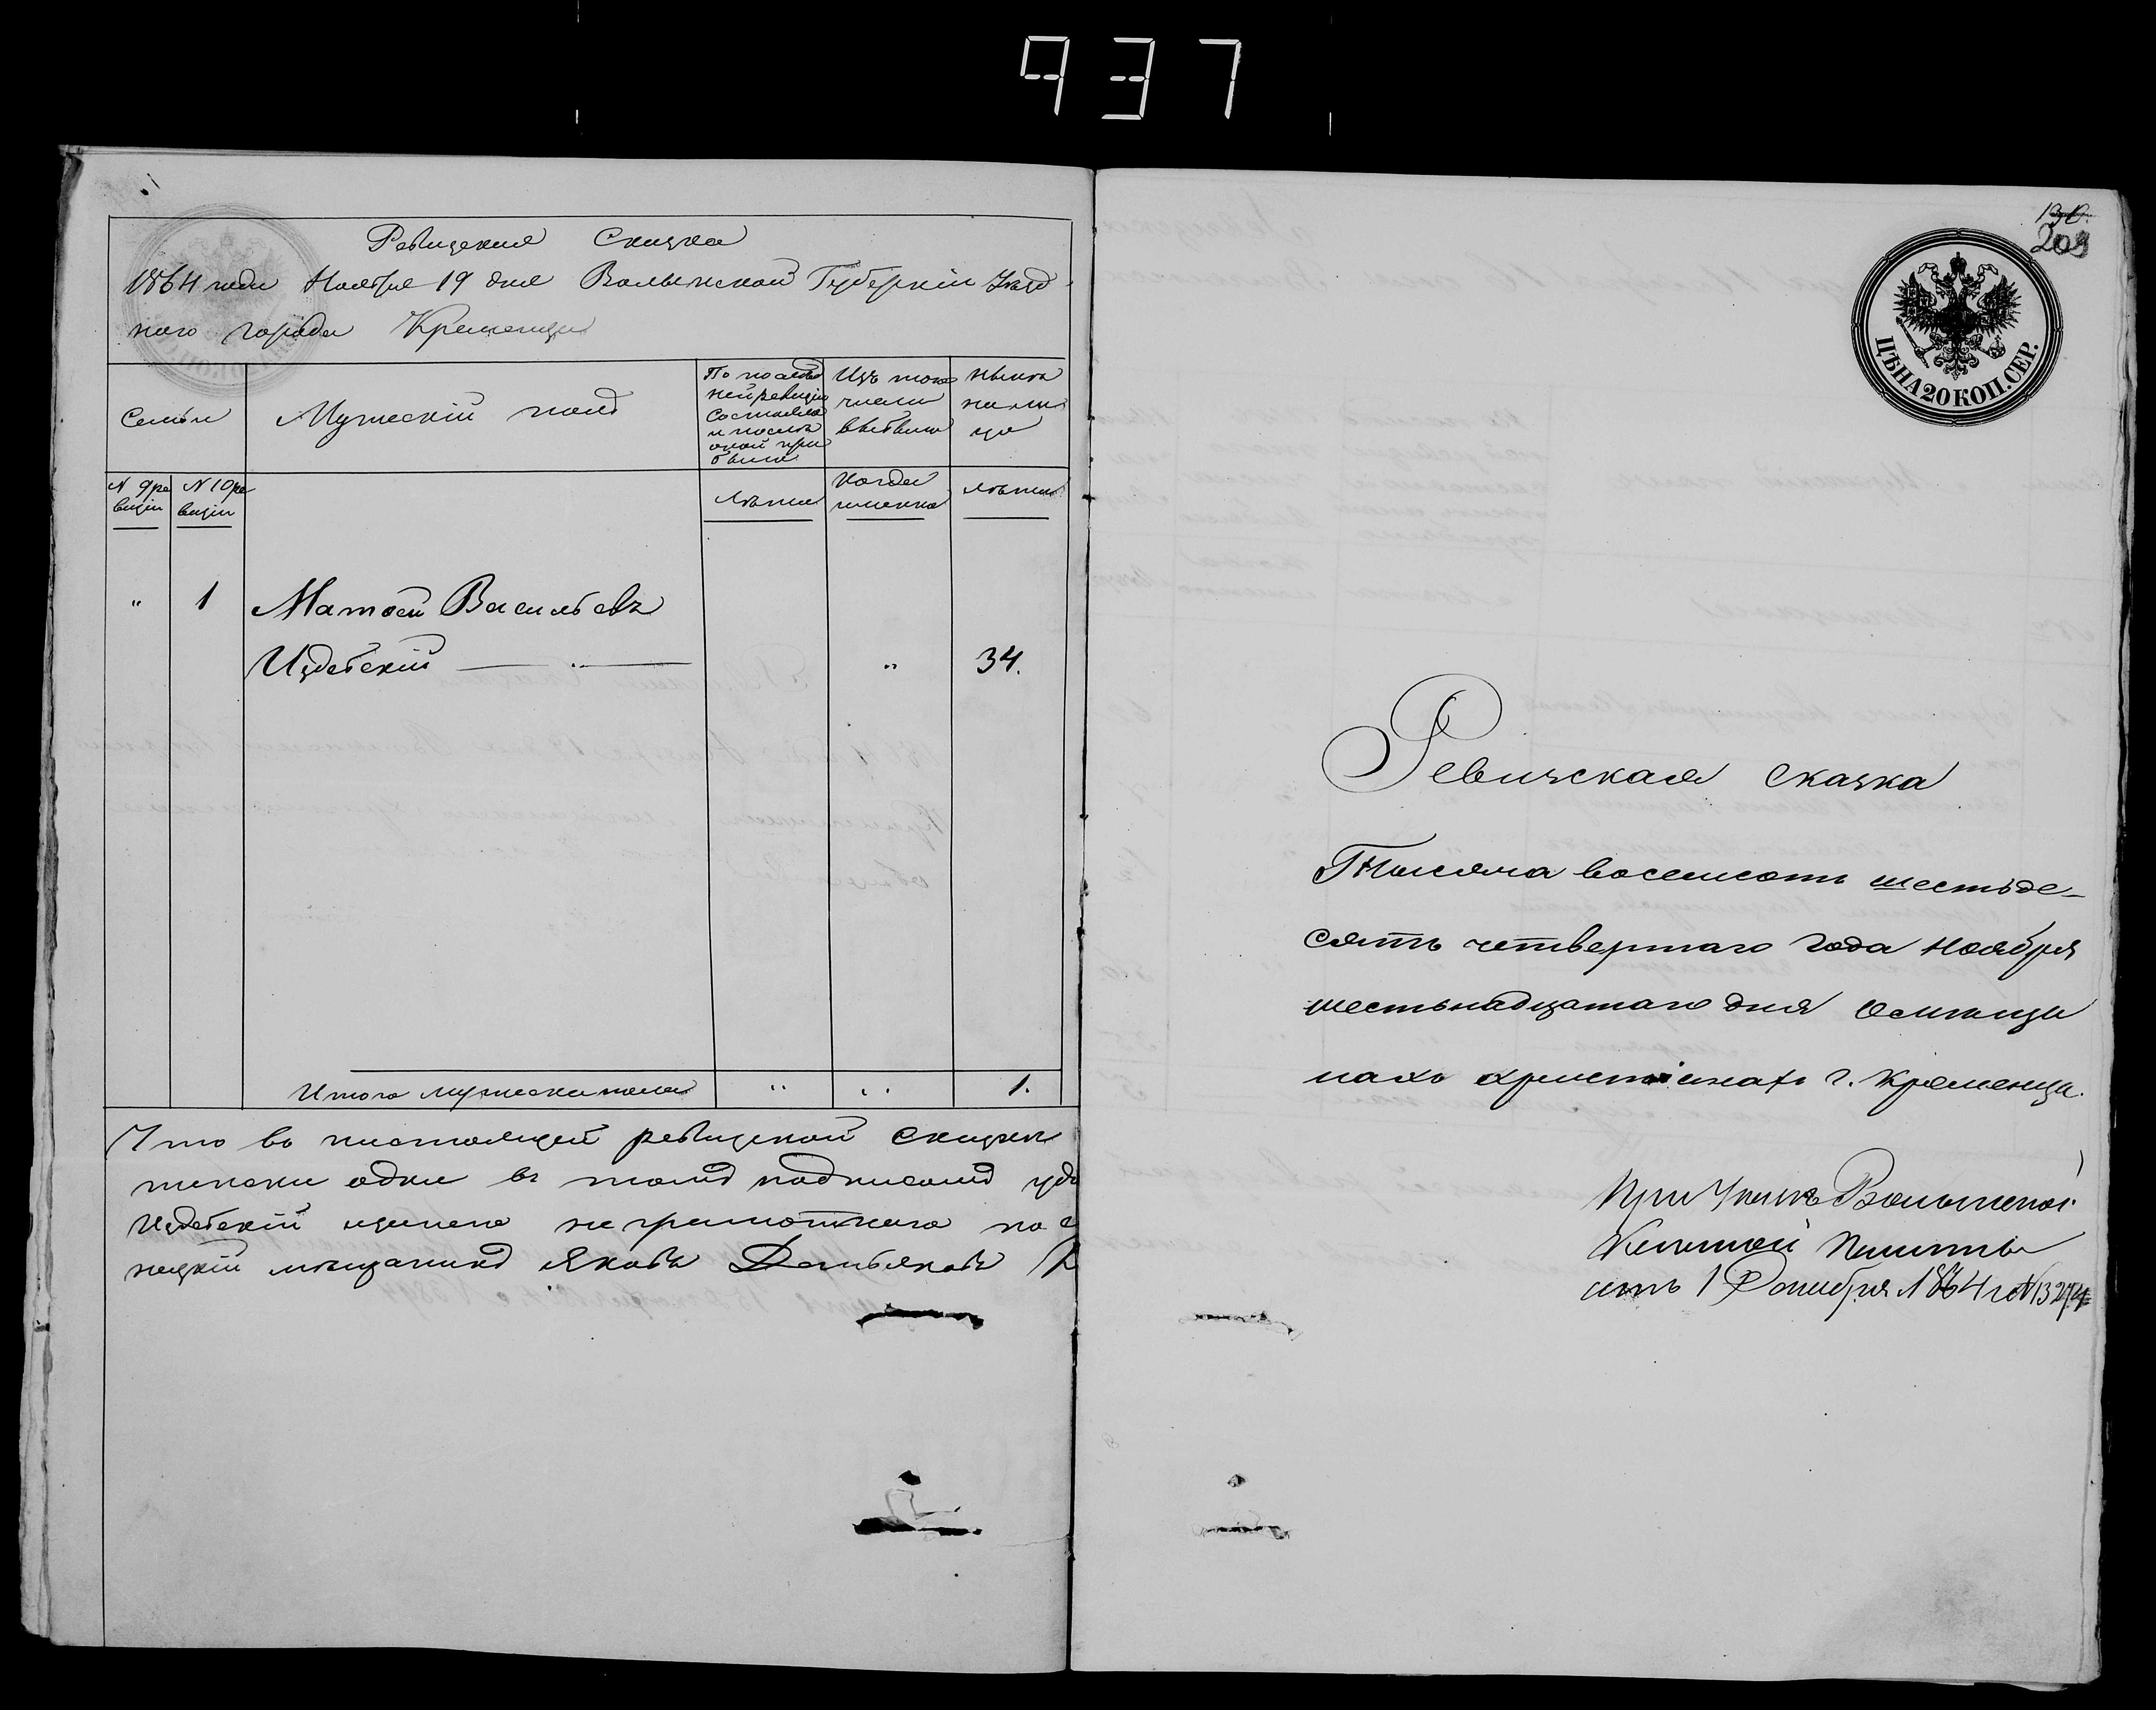 937
Ревизская Сказка
1864 года Ноября 19 дня Волынской Губерніи Уезд
наго города Кременца
Семьи
Мужескій полъ
По послед
ней ревизіи
состояло
и после
оной при
было
Изъ того
числа
выбыло
Ныне
на ли
цо
N 9 ре
визіи
N 10 ре
визіи
лета
Когда
именно
лета
" 1 Матвей Васильевъ
Издебскій " 34.
Итого мужеска пола " " 1.
Что въ настоящей ревизской сказке
одна въ томъ подписомъ
Издебскій неграмотнаго по
мещанинъ Яковъ
130.
209
ЦѢНА 20 КОП. СЕР.
Ревизская сказка
Тысяча восемсотъ шестьде-
сятъ четвертаго года Ноября
шестьнадцатаго дня
нахъ христіянахъ г. Кременца.
При Указе Волынской
Казенной Палаты
отъ 1 Декабря 1864 г. N 13274